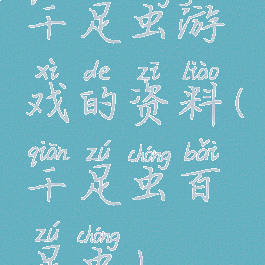 千足虫游
xì de zī liào
戏的资料(
qiān zú chóng bǎi
千足虫百
zú chóng
足虫)